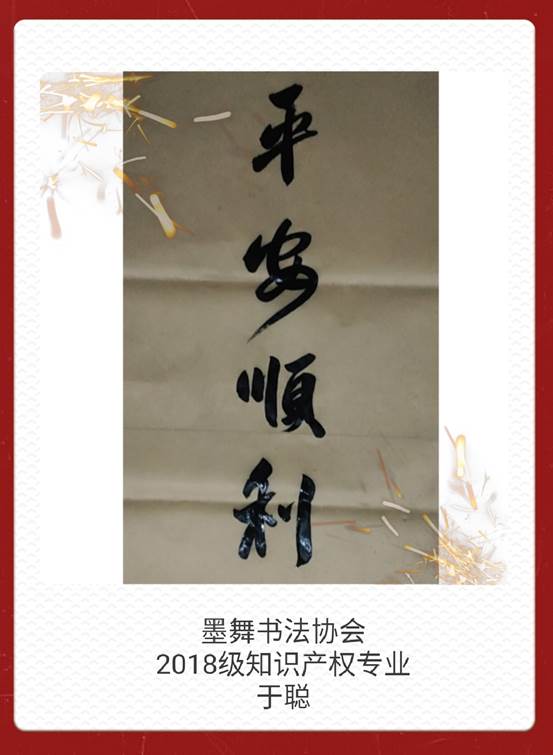 平安順利
墨舞书法协会
2018级知识产权专业
于聪